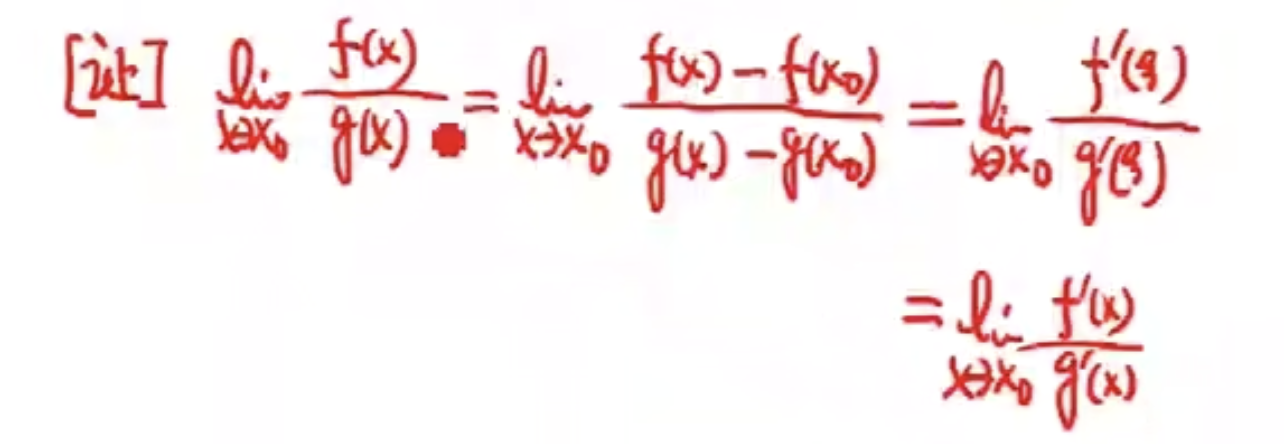 [证] lim_{x→x₀} f(x)/g(x) = lim_{x→x₀} (f(x) - f(x₀))/(g(x) - g(x₀)) = lim_{x→x₀} f'(ξ)/g'(ξ)
= lim_{x→x₀} f'(x)/g'(x)